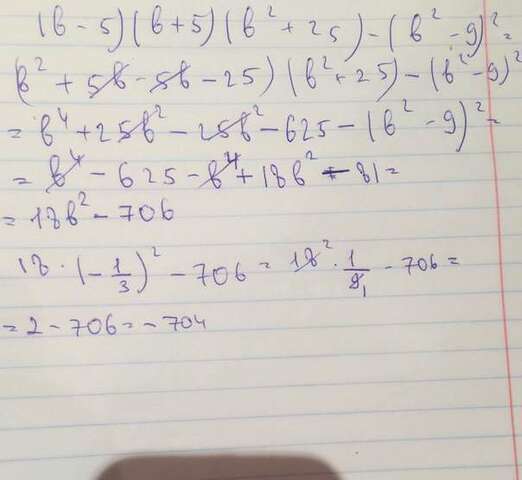 (в - 5)(в + 5)(в² + 25) - (в² - 9)² =
(в² + 5в - 5в - 25)(в² + 25) - (в² - 9)²
= в⁴ + 25в² - 25в² - 625 - (в² - 9)² =
= в⁴ - 625 - в⁴ + 18в² - 81 =
= 18в² - 706
18 · (-1/3)² - 706 = 18² · 1/9₁ - 706 =
= 2 - 706 = - 704